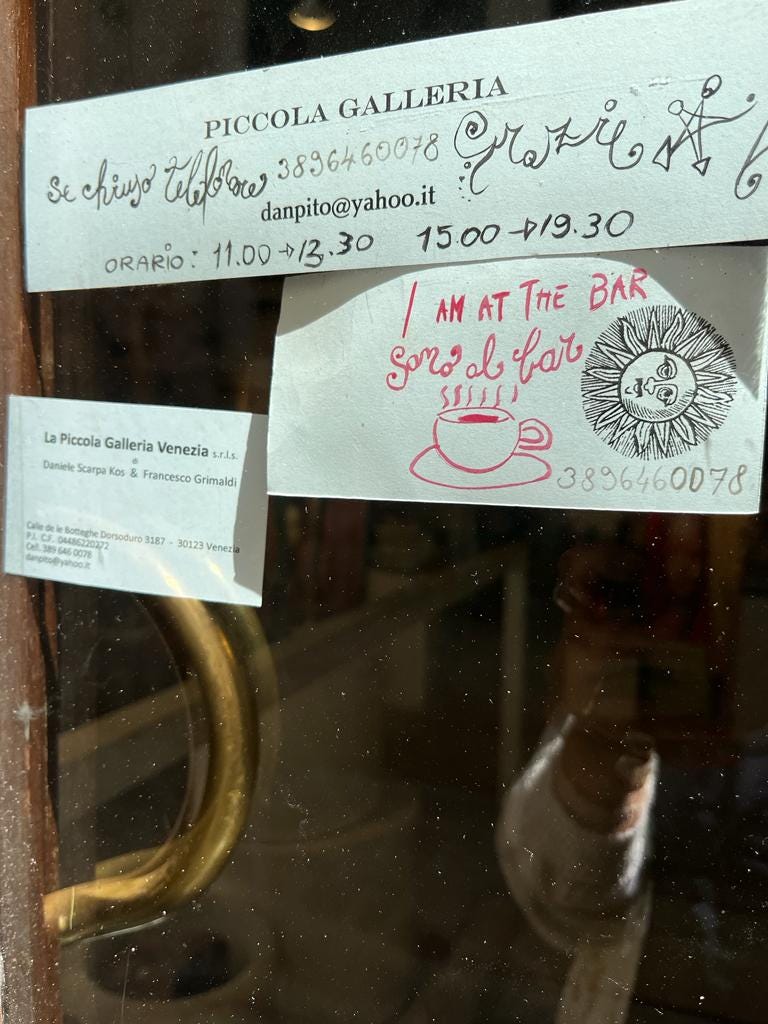 PICCOLA GALLERIA
Se chiuso telefonare 3896460078 Grazie
danpito@yahoo.it
ORARIO: 11.00→13.30 15.00→19.30
I AM AT THE BAR
Sono al bar
3896460078
La Piccola Galleria Venezia s.r.l.s.
di
Daniele Scarpa Kos & Francesco Grimaldi
Calle de le Botteghe Dorsoduro 3187 - 30123 Venezia
P.I. C.F. 04486220272
Cell. 389 646 0078
danpito@yahoo.it